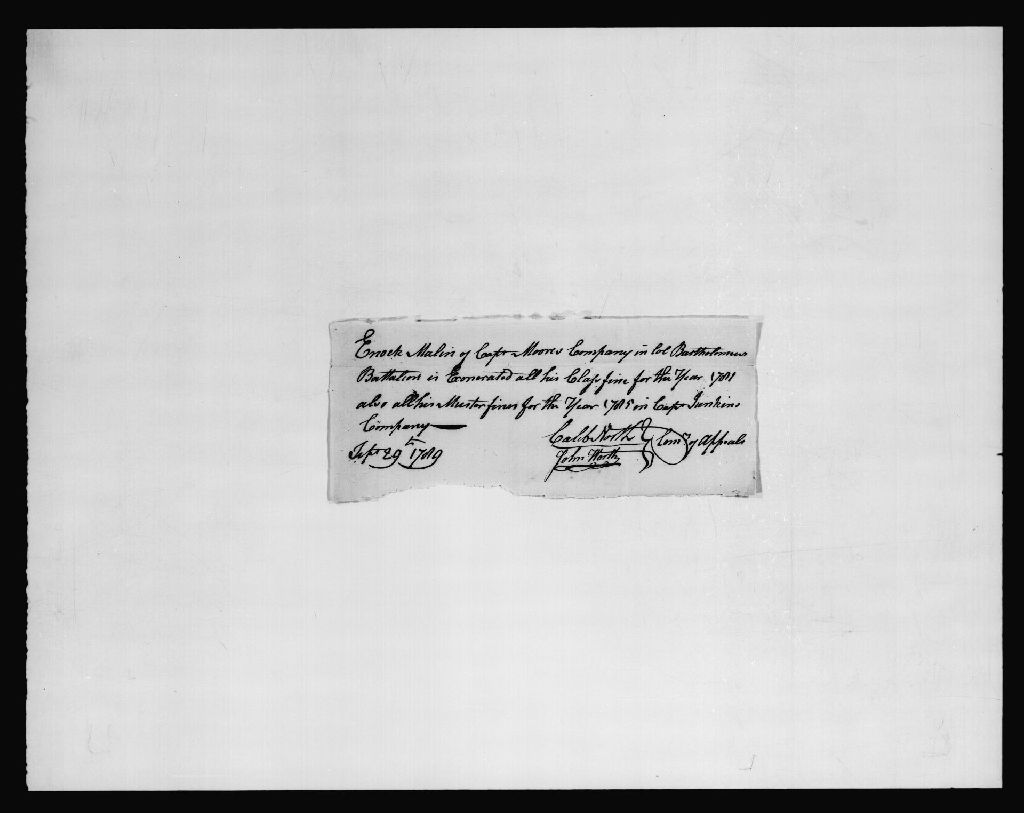 Enoch Malin of Capt Moores Company in Col Bartholmews
Battalion is Exonerated all his Class fine for the Year 1781
also all his Muster fines for the Year 1785 in Capt Junkins
Company
Sept 29th 1789
Caleb North
John Worth
Comrs of Appeals